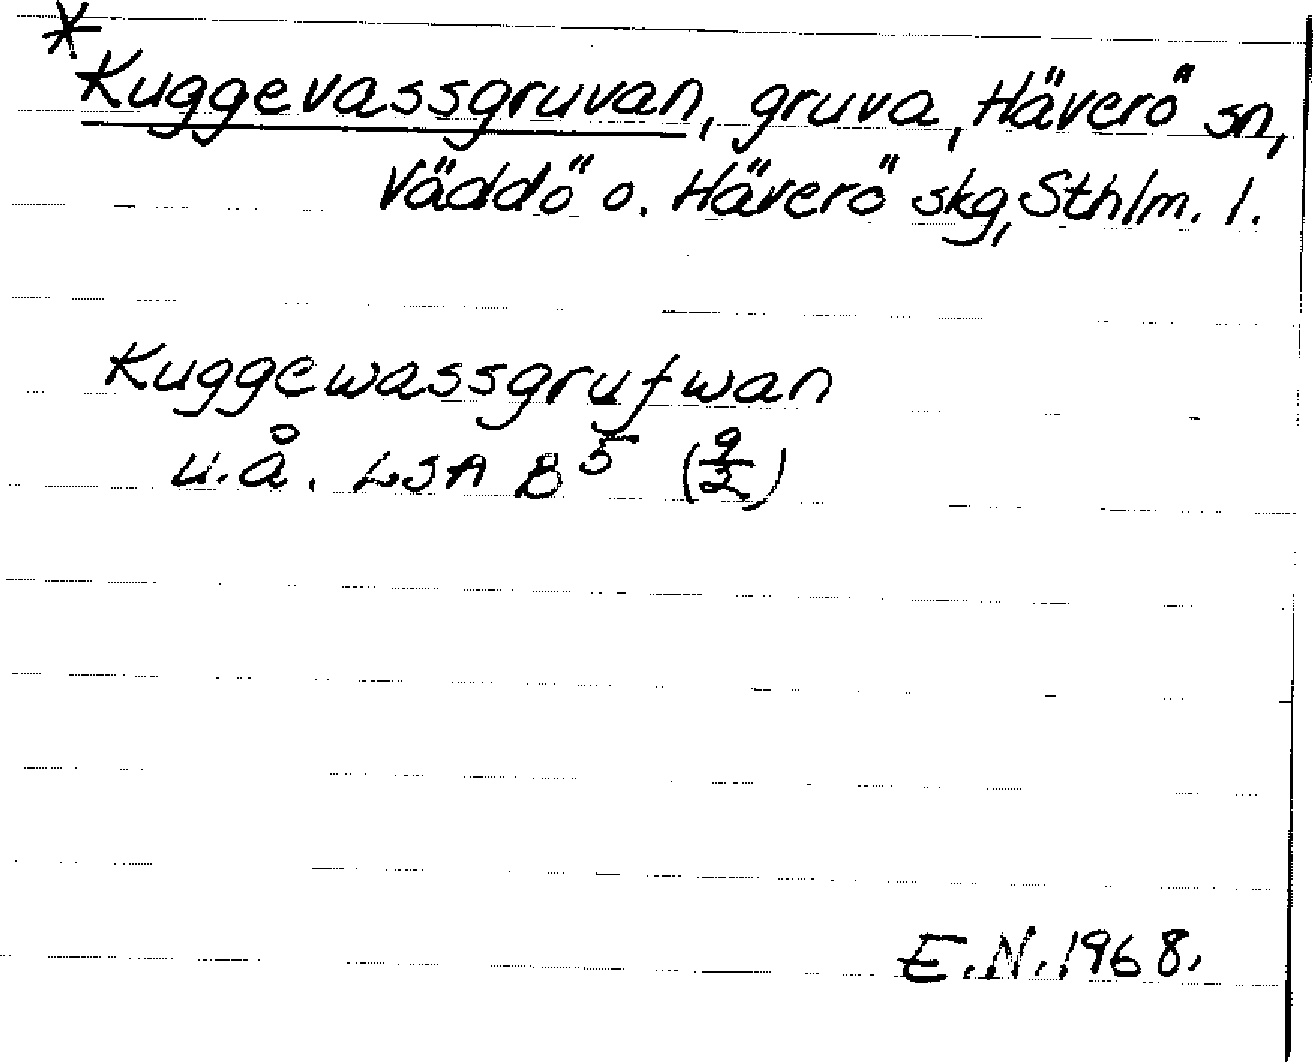 *Kuggevassgruvan, gruva, Häverö sn,
Väddö o. Häverö skg, Sthlm. l.
Kuggewassgrufwan
u.å. LSA B 5 (9/2)
E.N. 1968.